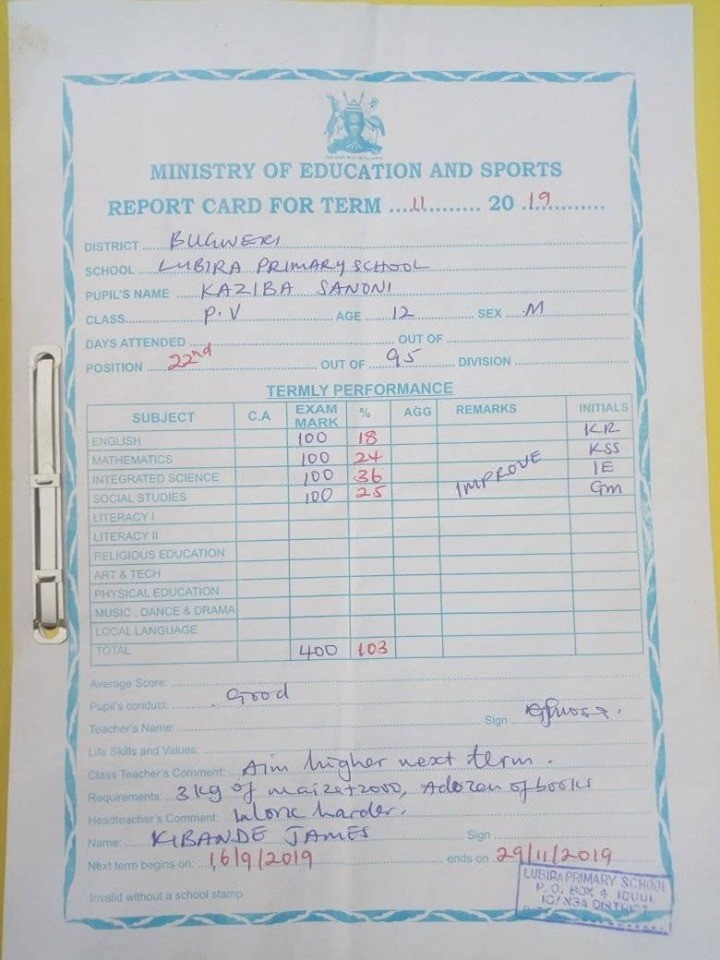 MINISTRY OF EDUCATION AND SPORTS
REPORT CARD FOR TERM ....11........... 20 .19............
DISTRICT BUGWERI
SCHOOL LUBIRA PRIMARY SCHOOL
PUPIL'S NAME KAZIBA SANONI
CLASS P.V AGE 12 SEX M
DAYS ATTENDED OUT OF
POSITION 22nd OUT OF 95 DIVISION
TERMLY PERFORMANCE
SUBJECT C.A EXAM MARK % AGG REMARKS INITIALS
ENGLISH 100 18 KR
MATHEMATICS 100 24 KSS
INTEGRATED SCIENCE 100 36 IMPROVE IE
SOCIAL STUDIES 100 25 GM
LITERACY I
LITERACY II
RELIGIOUS EDUCATION
ART & TECH
PHYSICAL EDUCATION
MUSIC, DANCE & DRAMA
LOCAL LANGUAGE
TOTAL 400 103
Average Score:
Pupil's conduct: Good
Teacher's Name: Sign
Life Skills and Values:
Class Teacher's Comment: Aim higher next term.
Requirements: 3kg of maize+2000, Adozen of books
Headteacher's Comment: Work harder.
Name: KIBANDE JAMES Sign
Next term begins on: 16/9/2019 ends on 29/11/2019
Invalid without a school stamp
LUBIRA PRIMARY SCHOOL
P. O. BOX 4
DISTRICT